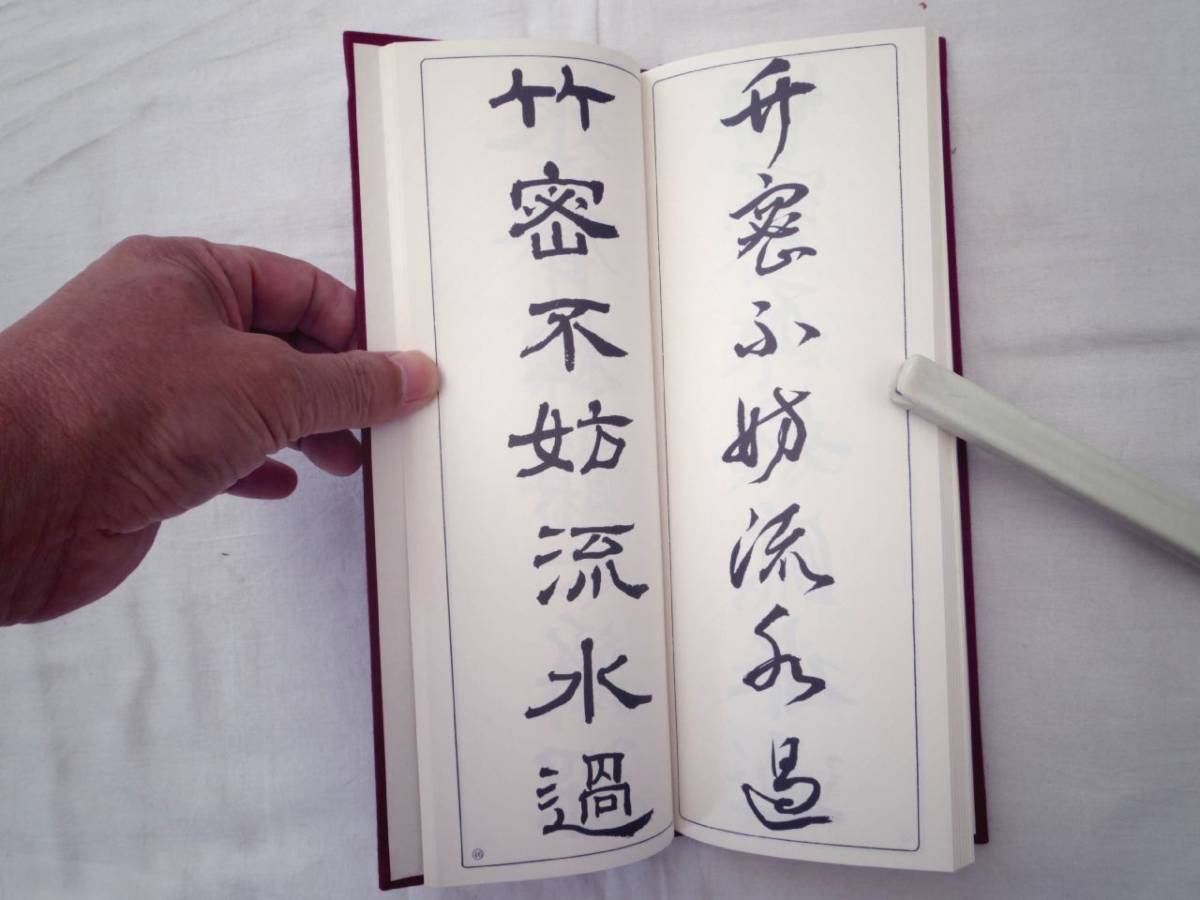 竹密不妨流水過
竹密不妨流水過